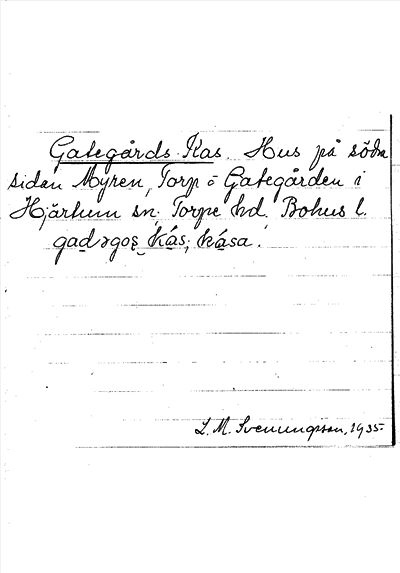 Gategårds Kas. Hus på södra
sidan Myren, Torp å Gategården i
Hjärtum sn. Torpe hd. Bohus l.
gadəgoş kás; kása.
L. M. Svenungsson, 1935